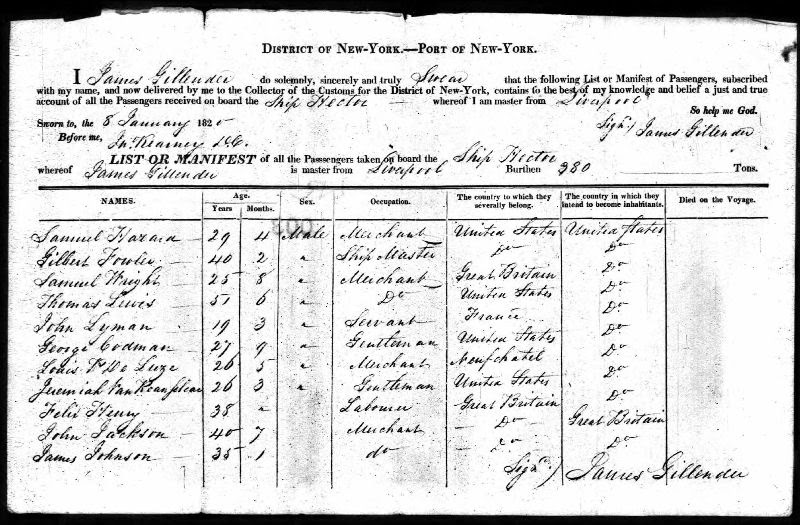 DISTRICT OF NEW-YORK.—PORT OF NEW-YORK.
I James Gillender do solemnly, sincerely and truly Swear that the following List or Manifest of Passengers, subscribed
with my name, and now delivered by me to the Collector of the Customs for the District of New-York, contains to the best of my knowledge and belief a just and true
account of all the Passengers received on board the Ship Hector whereof I am master from Liverpool
So help me God.
Sworn to, the 8 January 1820
Sign'd James Gillender
Before me,
Jn. Kearney
LIST OR MANIFEST of all the Passengers taken on board the Ship Hector
whereof James Gillender is master from Liverpool Burthen 380 Tons.
NAMES. Age. Years Months. Sex. Occupation. The country to which they severally belong. The country in which they intend to become inhabitants. Died on the Voyage.
Samuel Hazard 29 4 Male Merchant United States United States
Gilbert Fowler 40 2 " Ship Master Do Do
Samuel Wright 25 8 " Merchant Great Britain Do
Thomas Lewis 51 6 " Do United States Do
John Lyman 19 3 " Servant France Do
George Codman 27 9 " Gentleman United States Do
Louis P De Luze 26 5 " Merchant Neufchatel Do
Jeremiah Van Rensselaer 26 3 " Gentleman United States Do
Felix Henry 38 " Labourer Great Britain Do
John Jackson 40 7 Merchant Do Great Britain
James Johnson 35 1 do Do Do
Sign'd James Gillender